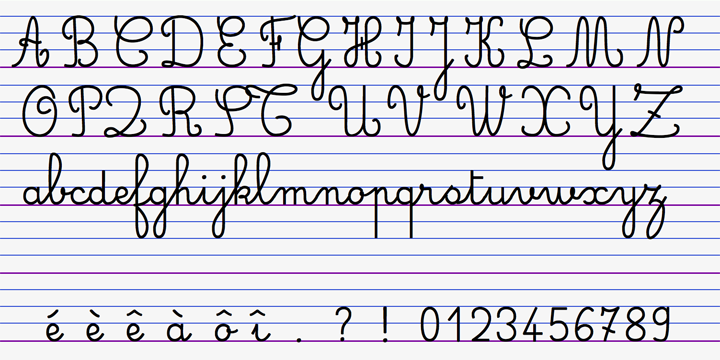 A B C D E F G H I J K L M N
O P Q R S T U V W X Y Z
abcdefghijklmnopqrstuvwxyz
é è ê à ô î . ? ! 0123456789